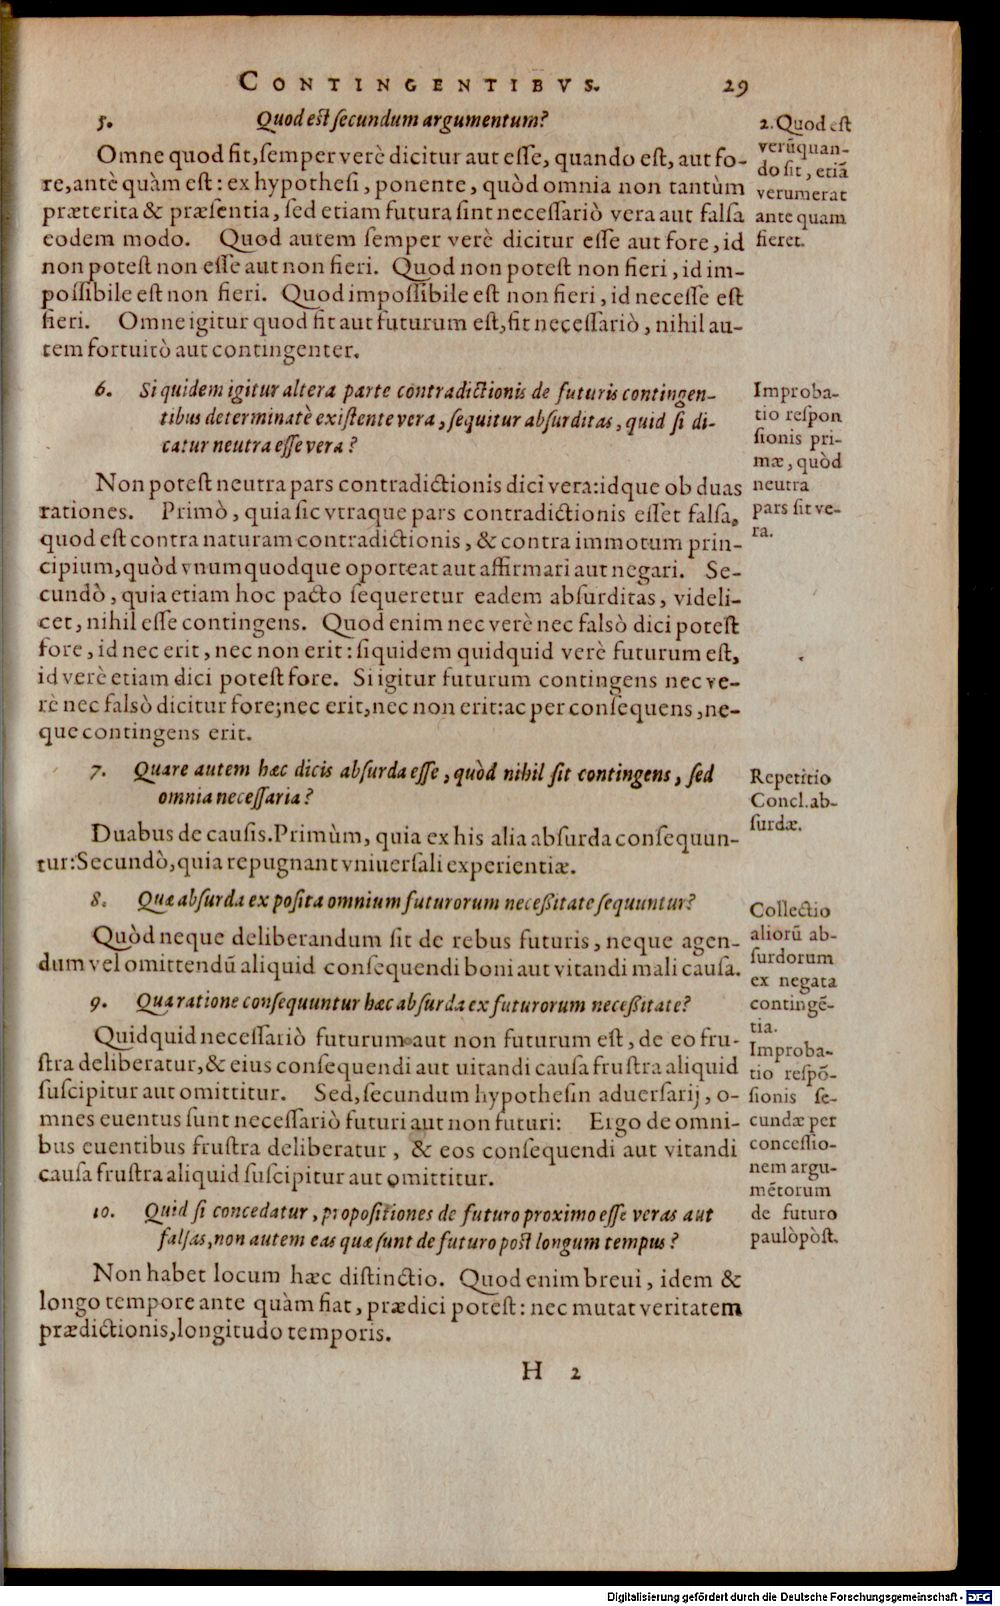 CONTINGENTIBVS. 29
5. Quod est secundum argumentum?
Omne quod fit, semper verè dicitur aut esse, quando est, aut fo-
re, antè quàm est: ex hypothesi, ponente, quòd omnia non tantùm
præterita & præsentia, sed etiam futura sint necessariò vera aut falsa
eodem modo. Quod autem semper verè dicitur esse aut fore, id
non potest non esse aut non fieri. Quod non potest non fieri, id im-
possibile est non fieri. Quod impossibile est non fieri, id necesse est
fieri. Omne igitur quod fit aut futurum est, fit necessariò, nihil au-
tem fortuitò aut contingenter.
2. Quod est
verũ quan-
do fit, etiã
verum erat
ante quam
fieret.
6. Si quidem igitur altera parte contradictionis de futuris contingen-
tibus determinatè existente vera, sequitur absurditas, quid si di-
catur neutra esse vera?
Non potest neutra pars contradictionis dici vera: idque ob duas
rationes. Primò, quia sic vtraque pars contradictionis esset falsa,
quod est contra naturam contradictionis, & contra immotum prin-
cipium, quòd vnumquodque oporteat aut affirmari aut negari. Se-
cundò, quia etiam hoc pacto sequeretur eadem absurditas, videli-
cet, nihil esse contingens. Quod enim nec verè nec falsò dici potest
fore, id nec erit, nec non erit: siquidem quidquid verè futurum est,
id verè etiam dici potest fore. Si igitur futurum contingens nec ve-
rè nec falsò dicitur fore; nec erit, nec non erit: ac per consequens, ne-
que contingens erit.
Improba-
tio respon
sionis pri-
mæ, quòd
neutra
pars sit ve-
ra.
7. Quare autem hæc dicis absurda esse, quòd nihil sit contingens, sed
omnia necessaria?
Duabus de causis. Primùm, quia ex his alia absurda consequun-
tur: Secundò, quia repugnant vniuersali experientiæ.
Repetitio
Concl. ab-
surdæ.
8. Quæ absurda ex posita omnium futurorum necessitate sequuntur?
Quòd neque deliberandum sit de rebus futuris, neque agen-
dum vel omittendũ aliquid consequendi boni aut vitandi mali causa.
9. Qua ratione consequuntur hæc absurda ex futurorum necessitate?
Quidquid necessariò futurum aut non futurum est, de eo fru-
stra deliberatur, & eius consequendi aut uitandi causa frustra aliquid
suscipitur aut omittitur. Sed, secundum hypothesin aduersarij, o-
mnes euentus sunt necessariò futuri aut non futuri: Ergo de omni-
bus euentibus frustra deliberatur, & eos consequendi aut vitandi
causa frustra aliquid suscipitur aut omittitur.
Collectio
aliorũ ab-
surdorum
ex negata
contingẽ-
tia.
10. Quid si concedatur, propositiones de futuro proximo esse veras aut
falsas, non autem eas quæ sunt de futuro post longum tempus?
Non habet locum hæc distinctio. Quod enim breui, idem &
longo tempore ante quàm fiat, prædici potest: nec mutat veritatem
prædictionis, longitudo temporis.
Improba-
tio respõ-
sionis se-
cundæ per
concessio-
nem argu-
mẽtorum
de futuro
paulò pòst.
H 2
Digitalisierung gefördert durch die Deutsche Forschungsgemeinschaft - DFG